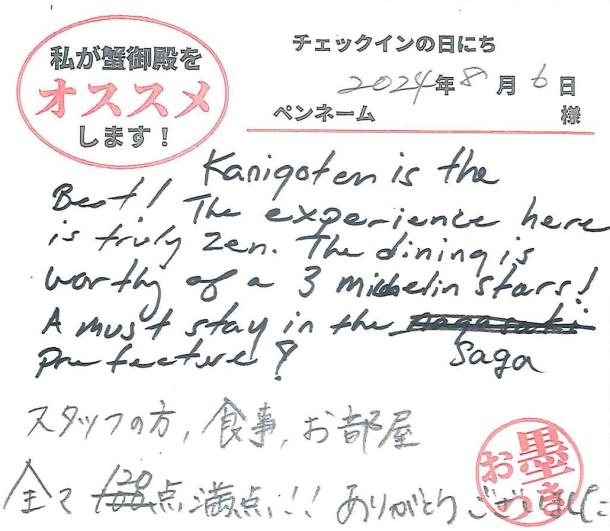 私が蟹御殿を
オススメ
します!
チェックインの日にち
2024年8月6日
ペンネーム 様
Kanigoten is the
Best! The experience here
is truly Zen. The dining is
worthy of a 3 michelin stars!
A must stay in the nagasaki
prefecture! Saga
スタッフの方, 食事, お部屋
全て 100 120点満点!! ありがとうございました
お墨つき